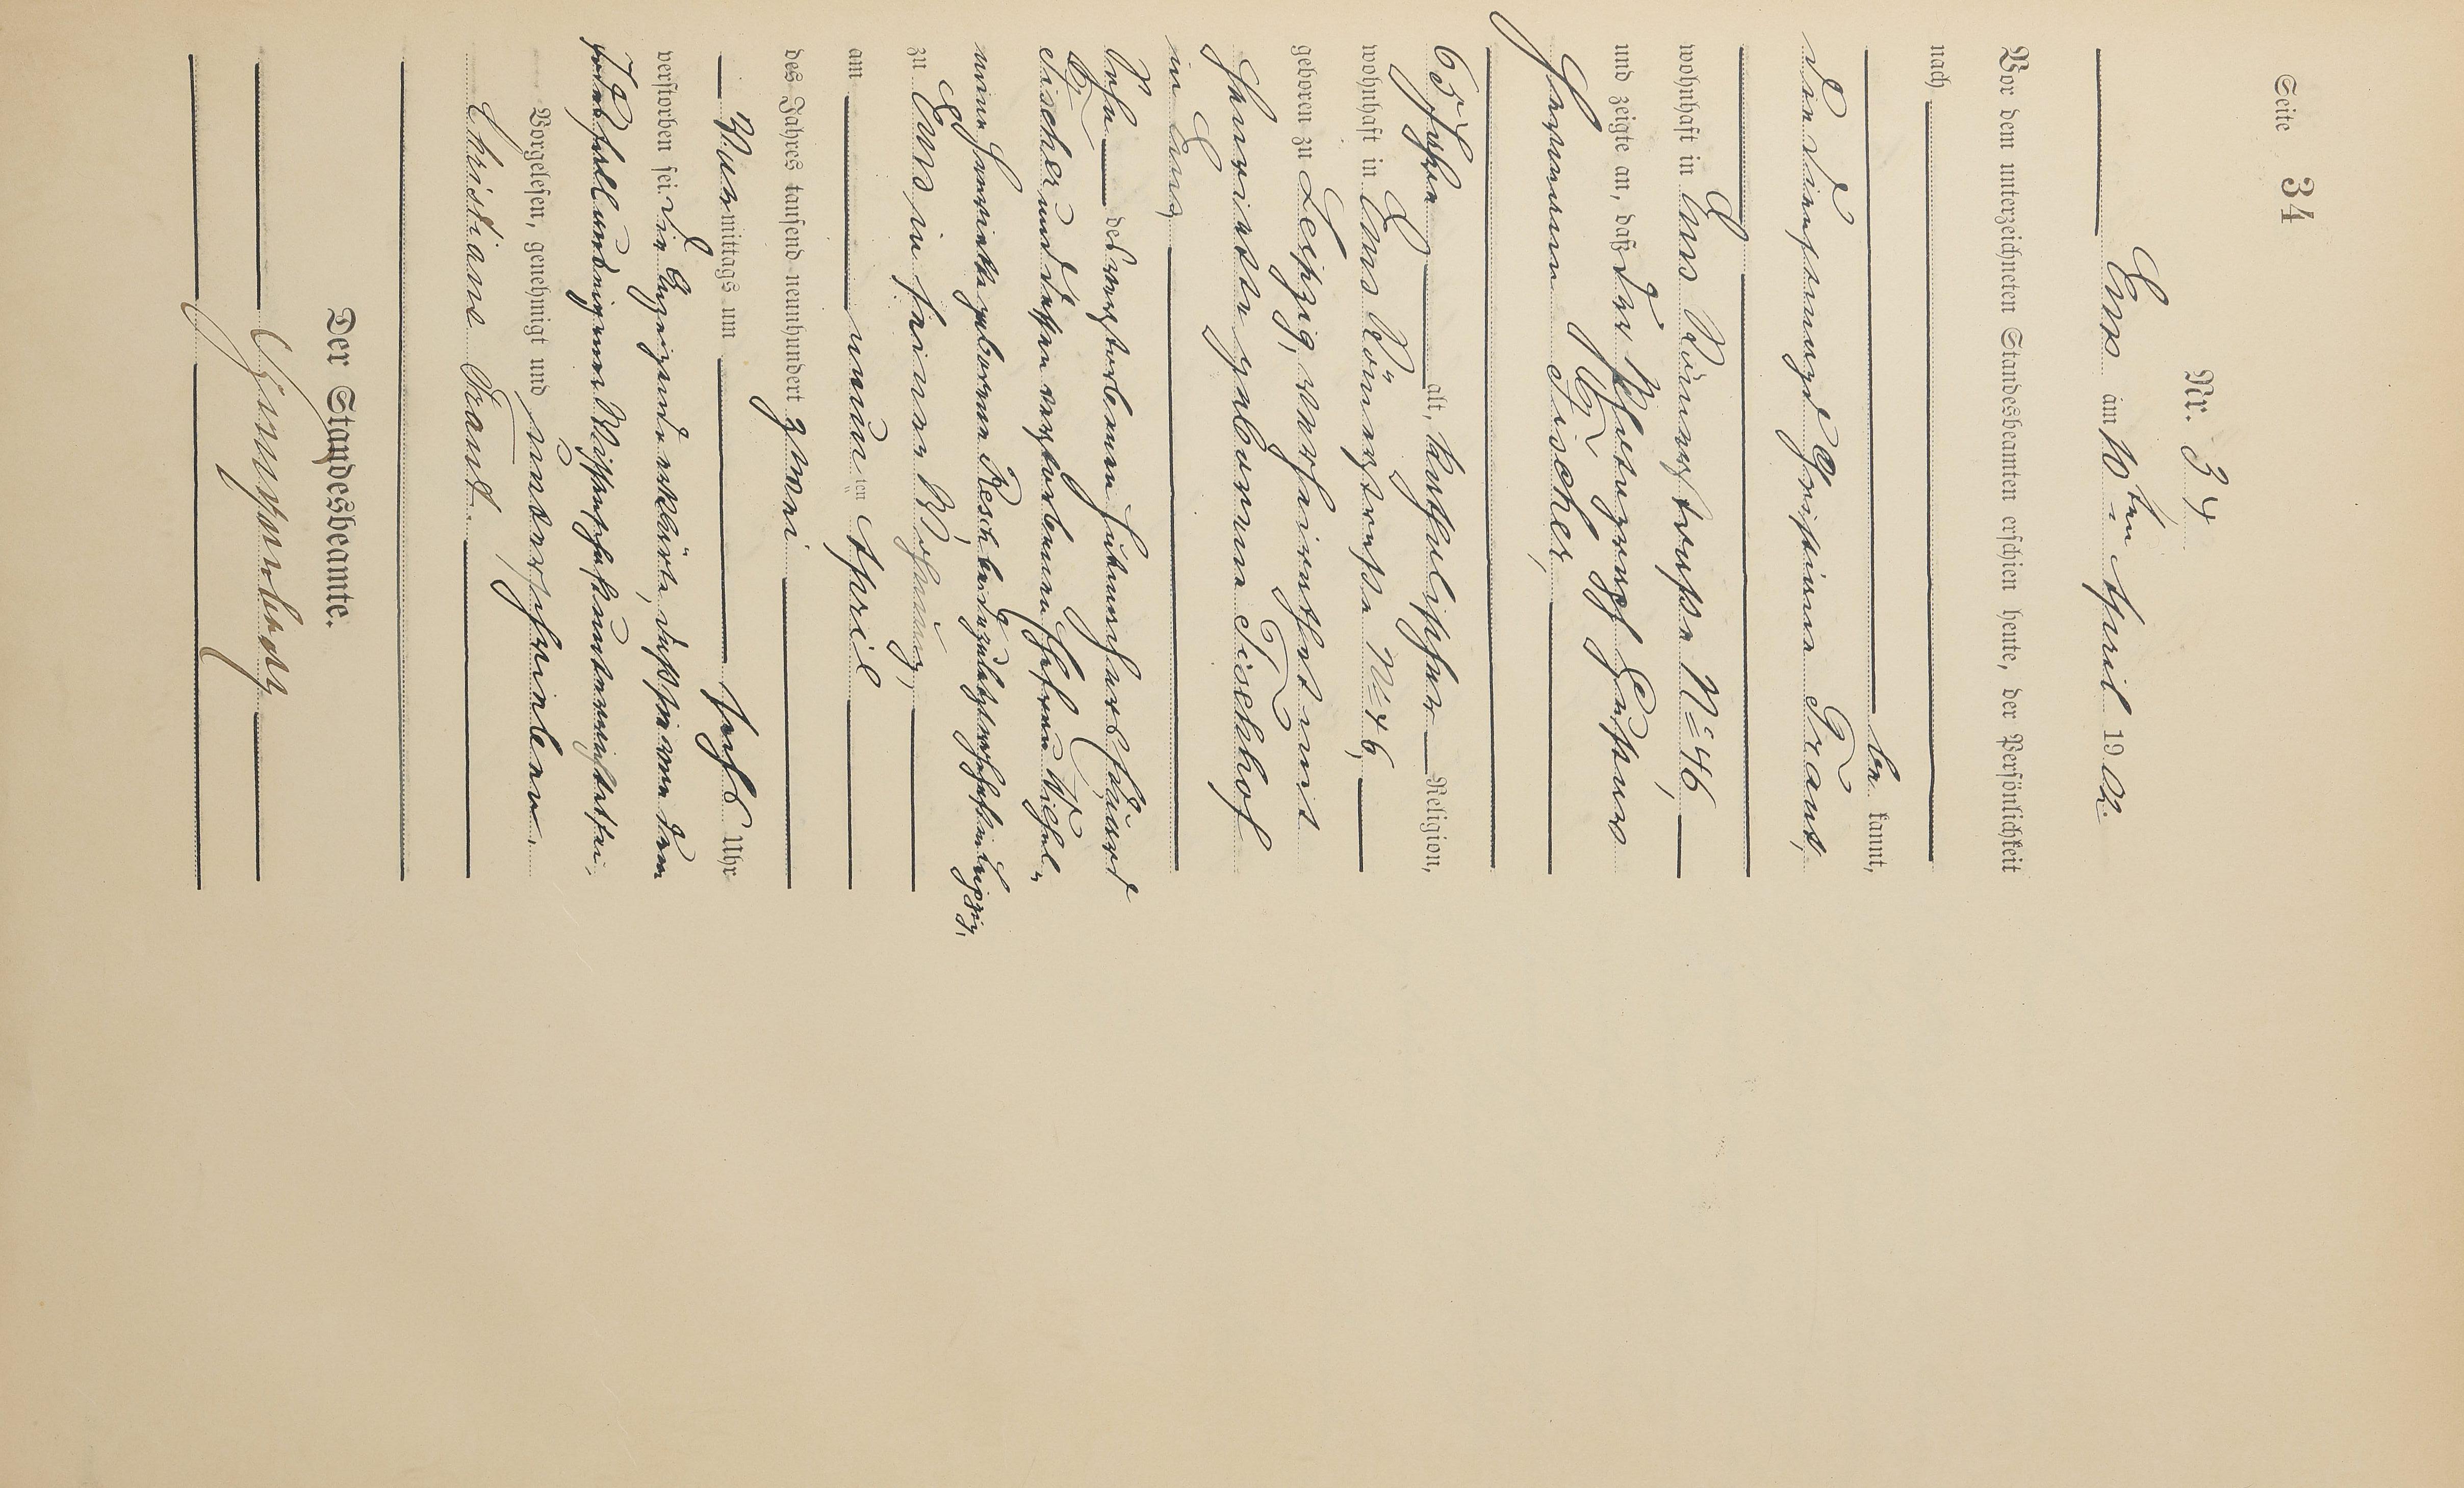 Seite 34
Nr. 34
Ems am 10ten April 1902.
Vor dem unterzeichneten Standesbeamten erschien heute, der Persönlichkeit
nach
be kannt,
die Dienstmagd Christiane Traut,
wohnhaft in Ems Römerstraße No 46,
und zeigte an, daß der Photograph Gustav
Hermann Fischer,
65 Jahre alt, katholischer Religion,
wohnhaft in Ems Römerstraße No 46,
geboren zu Leipzig, verheirathet mit
Henriette geborenen Fischhof
in Ems,
Sohn des verstorbenen Eduard
Fischer und dessen verstorbenen Ehefrau Wilhel-
mine Henriette geborene zuletzt wohnhaft in Leipzig,
zu Ems in seiner Wohnung,
am neunten April
des Jahres tausend neunhundert zwei
Vormittags um sechs Uhr
verstorben sei. Die Anzeigende erklärte, daß sie von dem
Sterbefall aus eigener Wissenschaft unterrichtet sei.
Vorgelesen, genehmigt und unterschrieben.
Christiane Traut.
Der Standesbeamte.